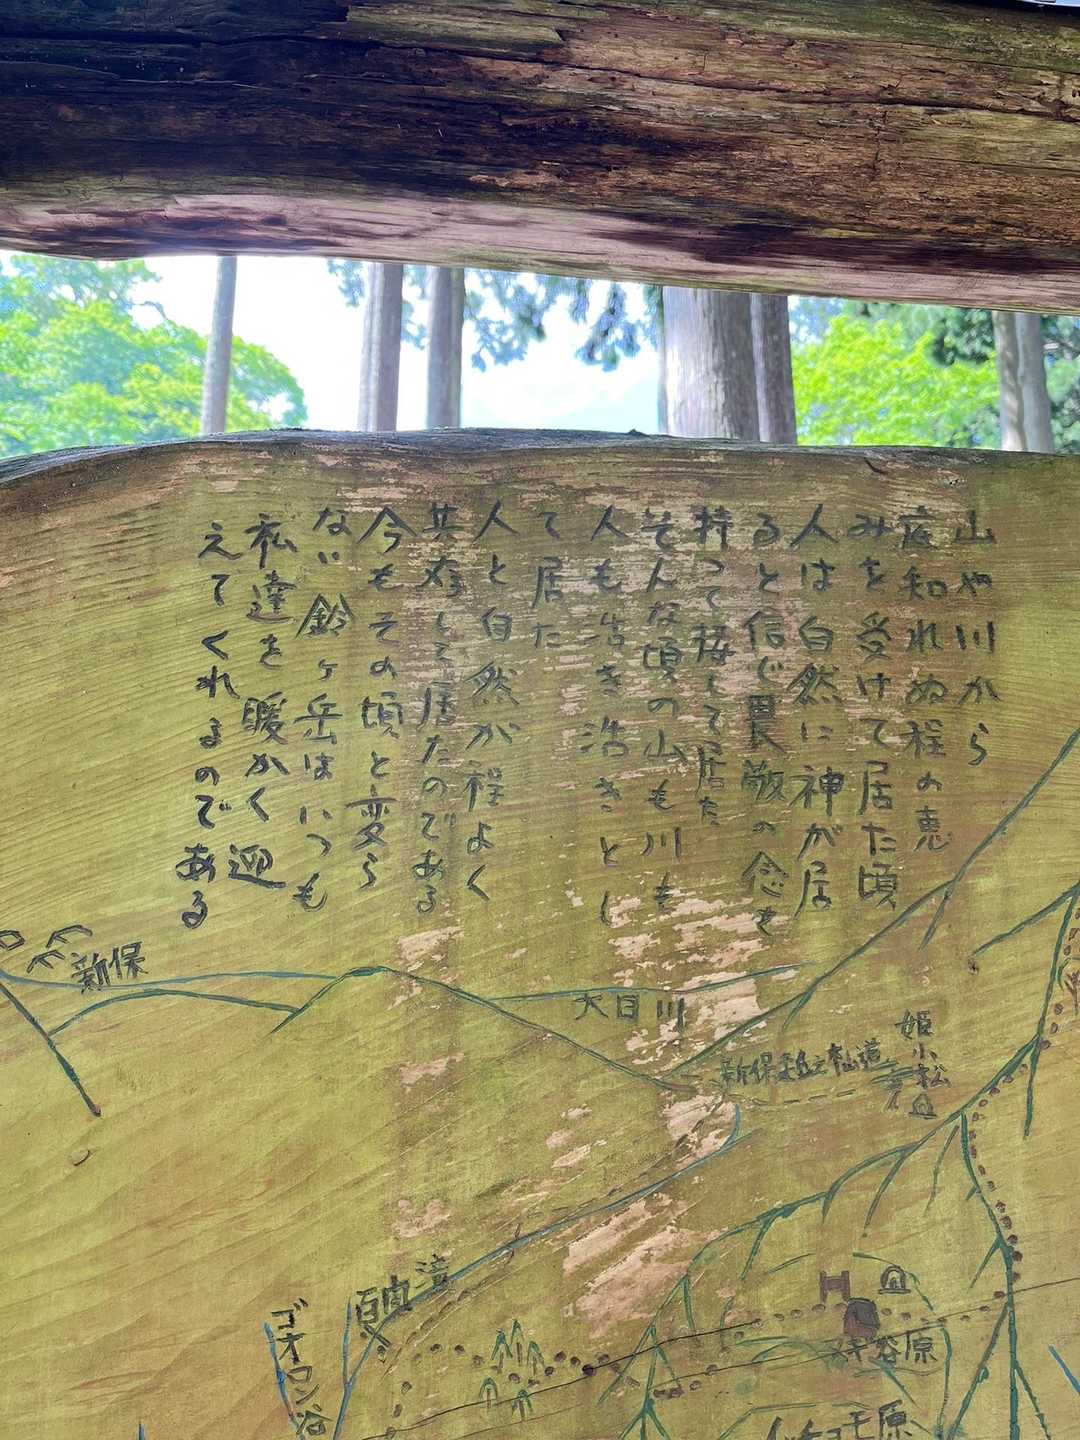 山や川から
底知れぬ程の恵
みを受けて居た頃
人は自然に神が居
ると信じ畏敬の念を
持って接して居た
そんな頃の山も川も
人も活き活きとし
て居た
人と自然が程よく
共存して居たのである
今もその頃と変ら
ない鈴ヶ岳はいつも
私達を暖かく迎
えてくれるのである
新保
大日川
姫小松
新保
ゴオロン谷
谷原